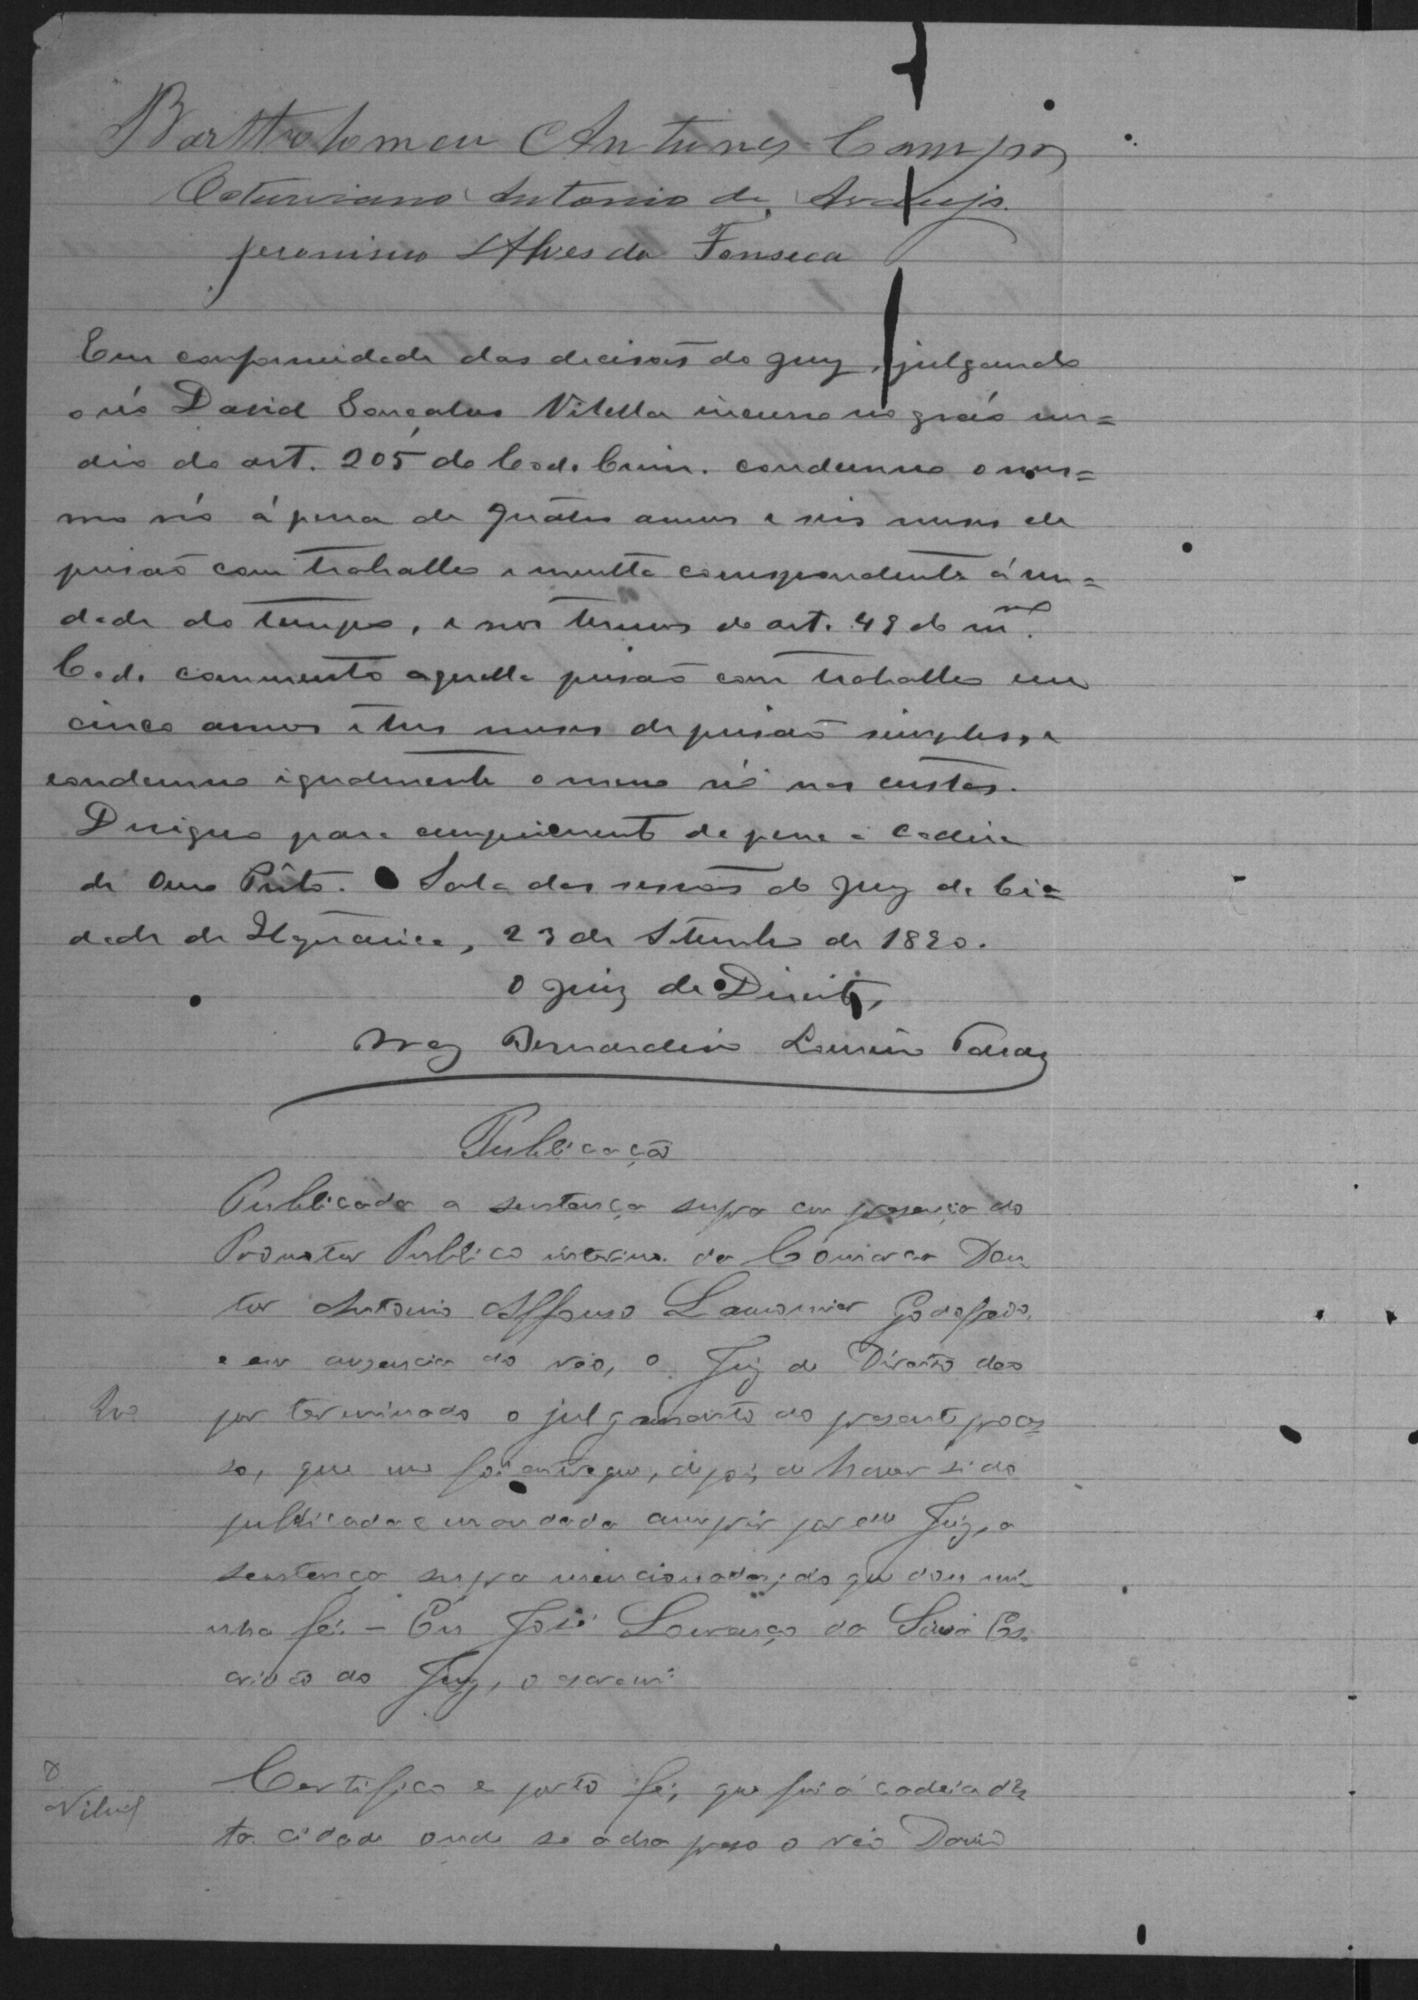 Bartholomeu Antunes Campos
Octaviano Antonio de Araujo
Jeronimo Alves da Fonseca
Em conformidade das decisões do Jury, julgando
o réo David Gonçalves Vilella incurso no gráo me=
dio do art. 205 do Cod. Crim. condemno o mes=
mo réo á pena de quatro annos e seis mezes de
prisão com trabalho e multa correspondente á me=
tade do tempo, e nos termos do art. 49 do m.mo
Cod. commuto aquella prisão com trabalho em
cinco annos e tres mezes de prisão simples, e
condemno igualmente o mesmo réo nas custas.
Designo para cumprimento da pena a cadeia
de Ouro Preto. Sala das sessões do Jury da Ci=
dade de Itapecerica, 23 de Setembro de 1890.
O Juiz de Direito,
Braz Bernardino Loureiro Tavares
Publicação
Publicada a sentença supra em presença do
Promotor Publico interino da Comarca Dou
tor Antonio Affonso Lamounier Godofredo,
e em ausencia do réo, o Juiz de Direito deo
por terminado o julgamento do presente proces
so, que me foi entregue, depois de haver sido
publicada e mandada cumprir por elle Juiz, a
sentença supra mencionada; do que dou mi-
nha fé. - Eu José Lourenço da Silva Es
crivão do Jury, o escrevi.
Certifico e porto fé, que fui á cadeia des
ta cidade onde se acha preso o réo David